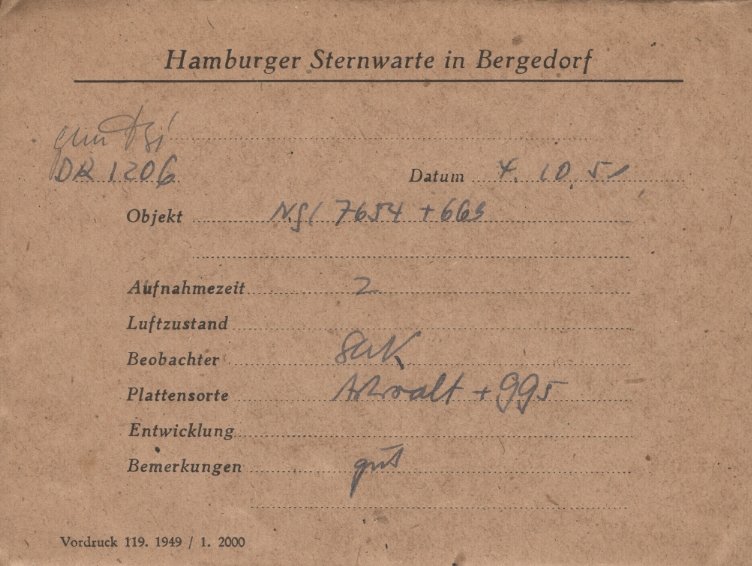 Hamburger Sternwarte in Bergedorf
DR 1206 Datum 4. 10. 51
Objekt NGC 7654 + 663
Aufnahmezeit 2
Luftzustand
Beobachter
Plattensorte + 995
Entwicklung
Bemerkungen gut
Vordruck 119. 1949 / 1. 2000